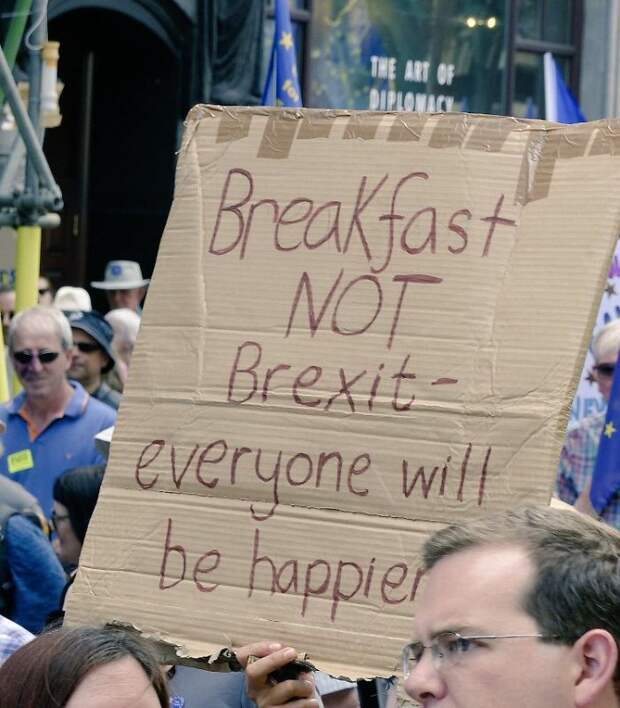 THE ART OF
DIPLOMACY
BreaKfast
NOT
Brexit-
everyone will
be happier